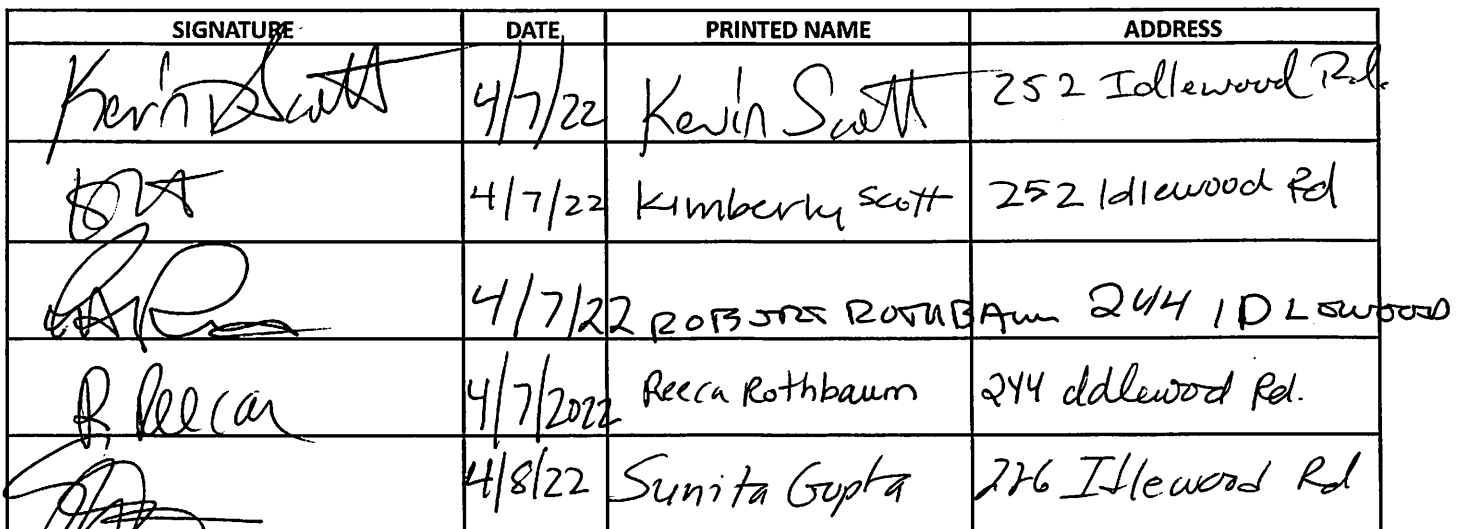 SIGNATURE DATE PRINTED NAME ADDRESS
Kevin D Scott 4/7/22 Kevin Scott 252 Idlewood Rd.
4/7/22 Kimberly Scott 252 Idlewood Rd
4/7/22 ROBERT ROTHBAUM 244 IDLEWOOD
4/7/2022 Reeca Rothbaum 244 Idlewood Rd.
4/8/22 Sunita Gupta Idlewood Rd